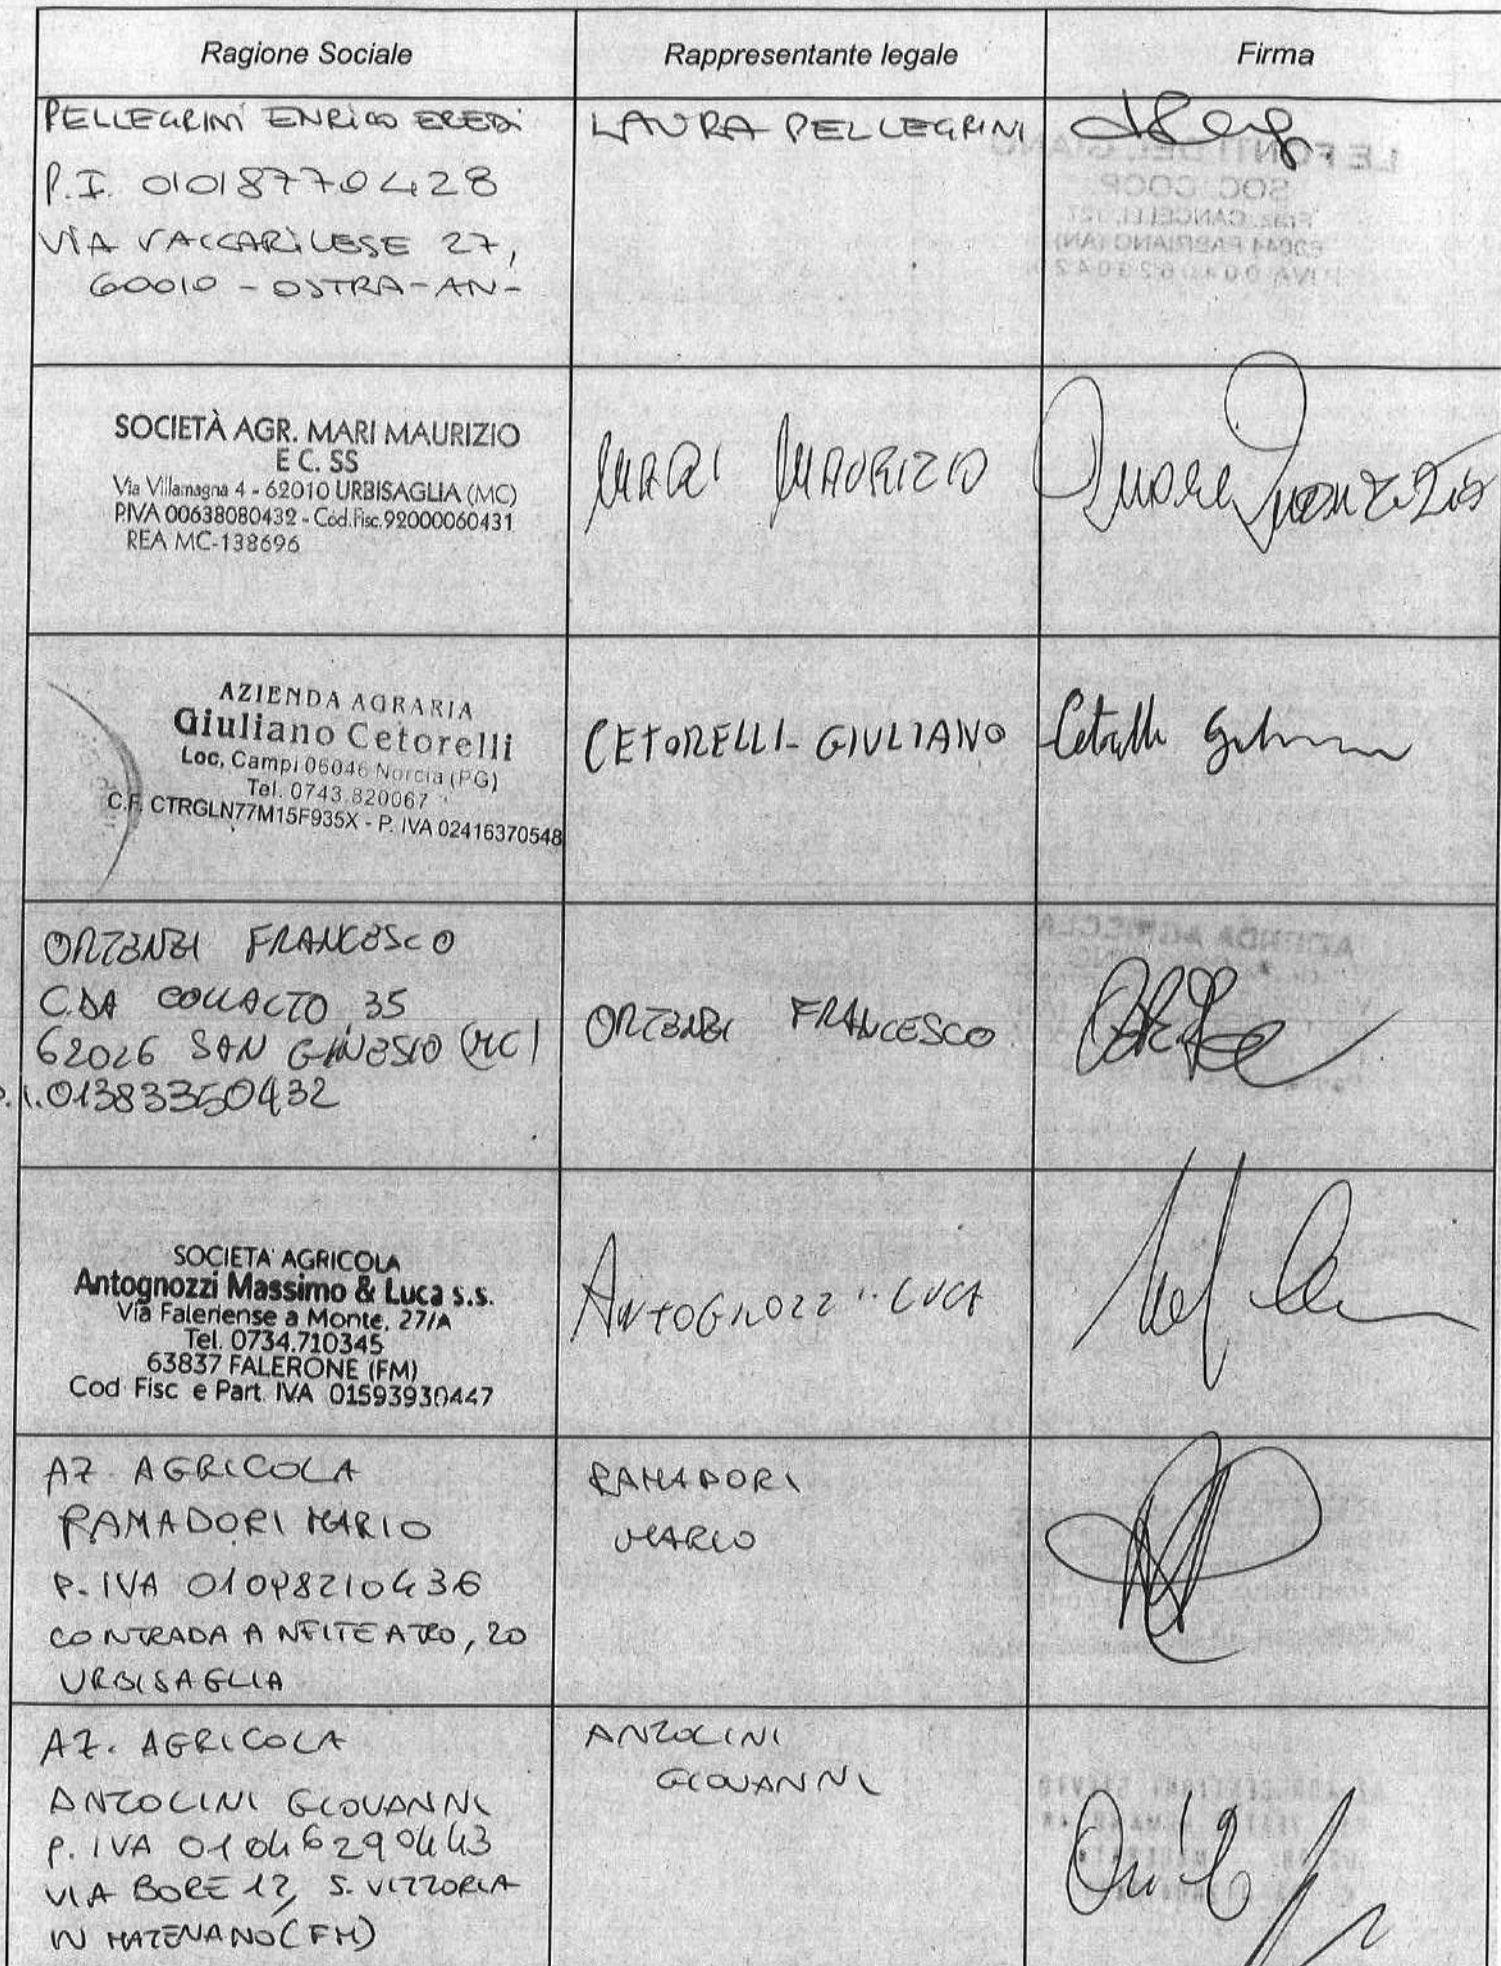 Ragione Sociale
Rappresentante legale
Firma
PELLEGRINI ENRICO EREDI
P.I. 01018770428
VIA VACCARILESE 27,
60010 - OSTRA - AN -
LAURA PELLEGRINI
SOCIETÀ AGR. MARI MAURIZIO
E C. SS
Via Villamagna 4 - 62010 URBISAGLIA (MC)
P.IVA 00638080432 - Cod.Fisc.92000060431
REA MC-138696
MARI MAURIZIO
AZIENDA AGRARIA
Giuliano Cetorelli
Loc. Campi 06046 Norcia (PG)
Tel. 0743.820067
C.F. CTRGLN77M15F935X - P. IVA 02416370548
CETORELLI - GIULIANO
ORTENZI FRANCESCO
C.DA COLLALTO 35
62026 SAN GINESIO (MC)
P.I. 01383350432
ORTENZI FRANCESCO
SOCIETA' AGRICOLA
Antognozzi Massimo & Luca s.s.
Via Faleriense a Monte, 27/A
Tel. 0734.710345
63837 FALERONE (FM)
Cod Fisc e Part. IVA 01593930447
ANTOGNOZZI LUCA
AZ. AGRICOLA
RAMADORI MARIO
P. IVA 01098210436
CONTRADA ANFITEATRO, 20
URBISAGLIA
RAMADORI
MARIO
AZ. AGRICOLA
ANZOLINI GIOVANNI
P. IVA 01046290443
VIA BORE 17, S. VITTORIA
IN MATENANO (FM)
ANZOLINI
GIOVANNI